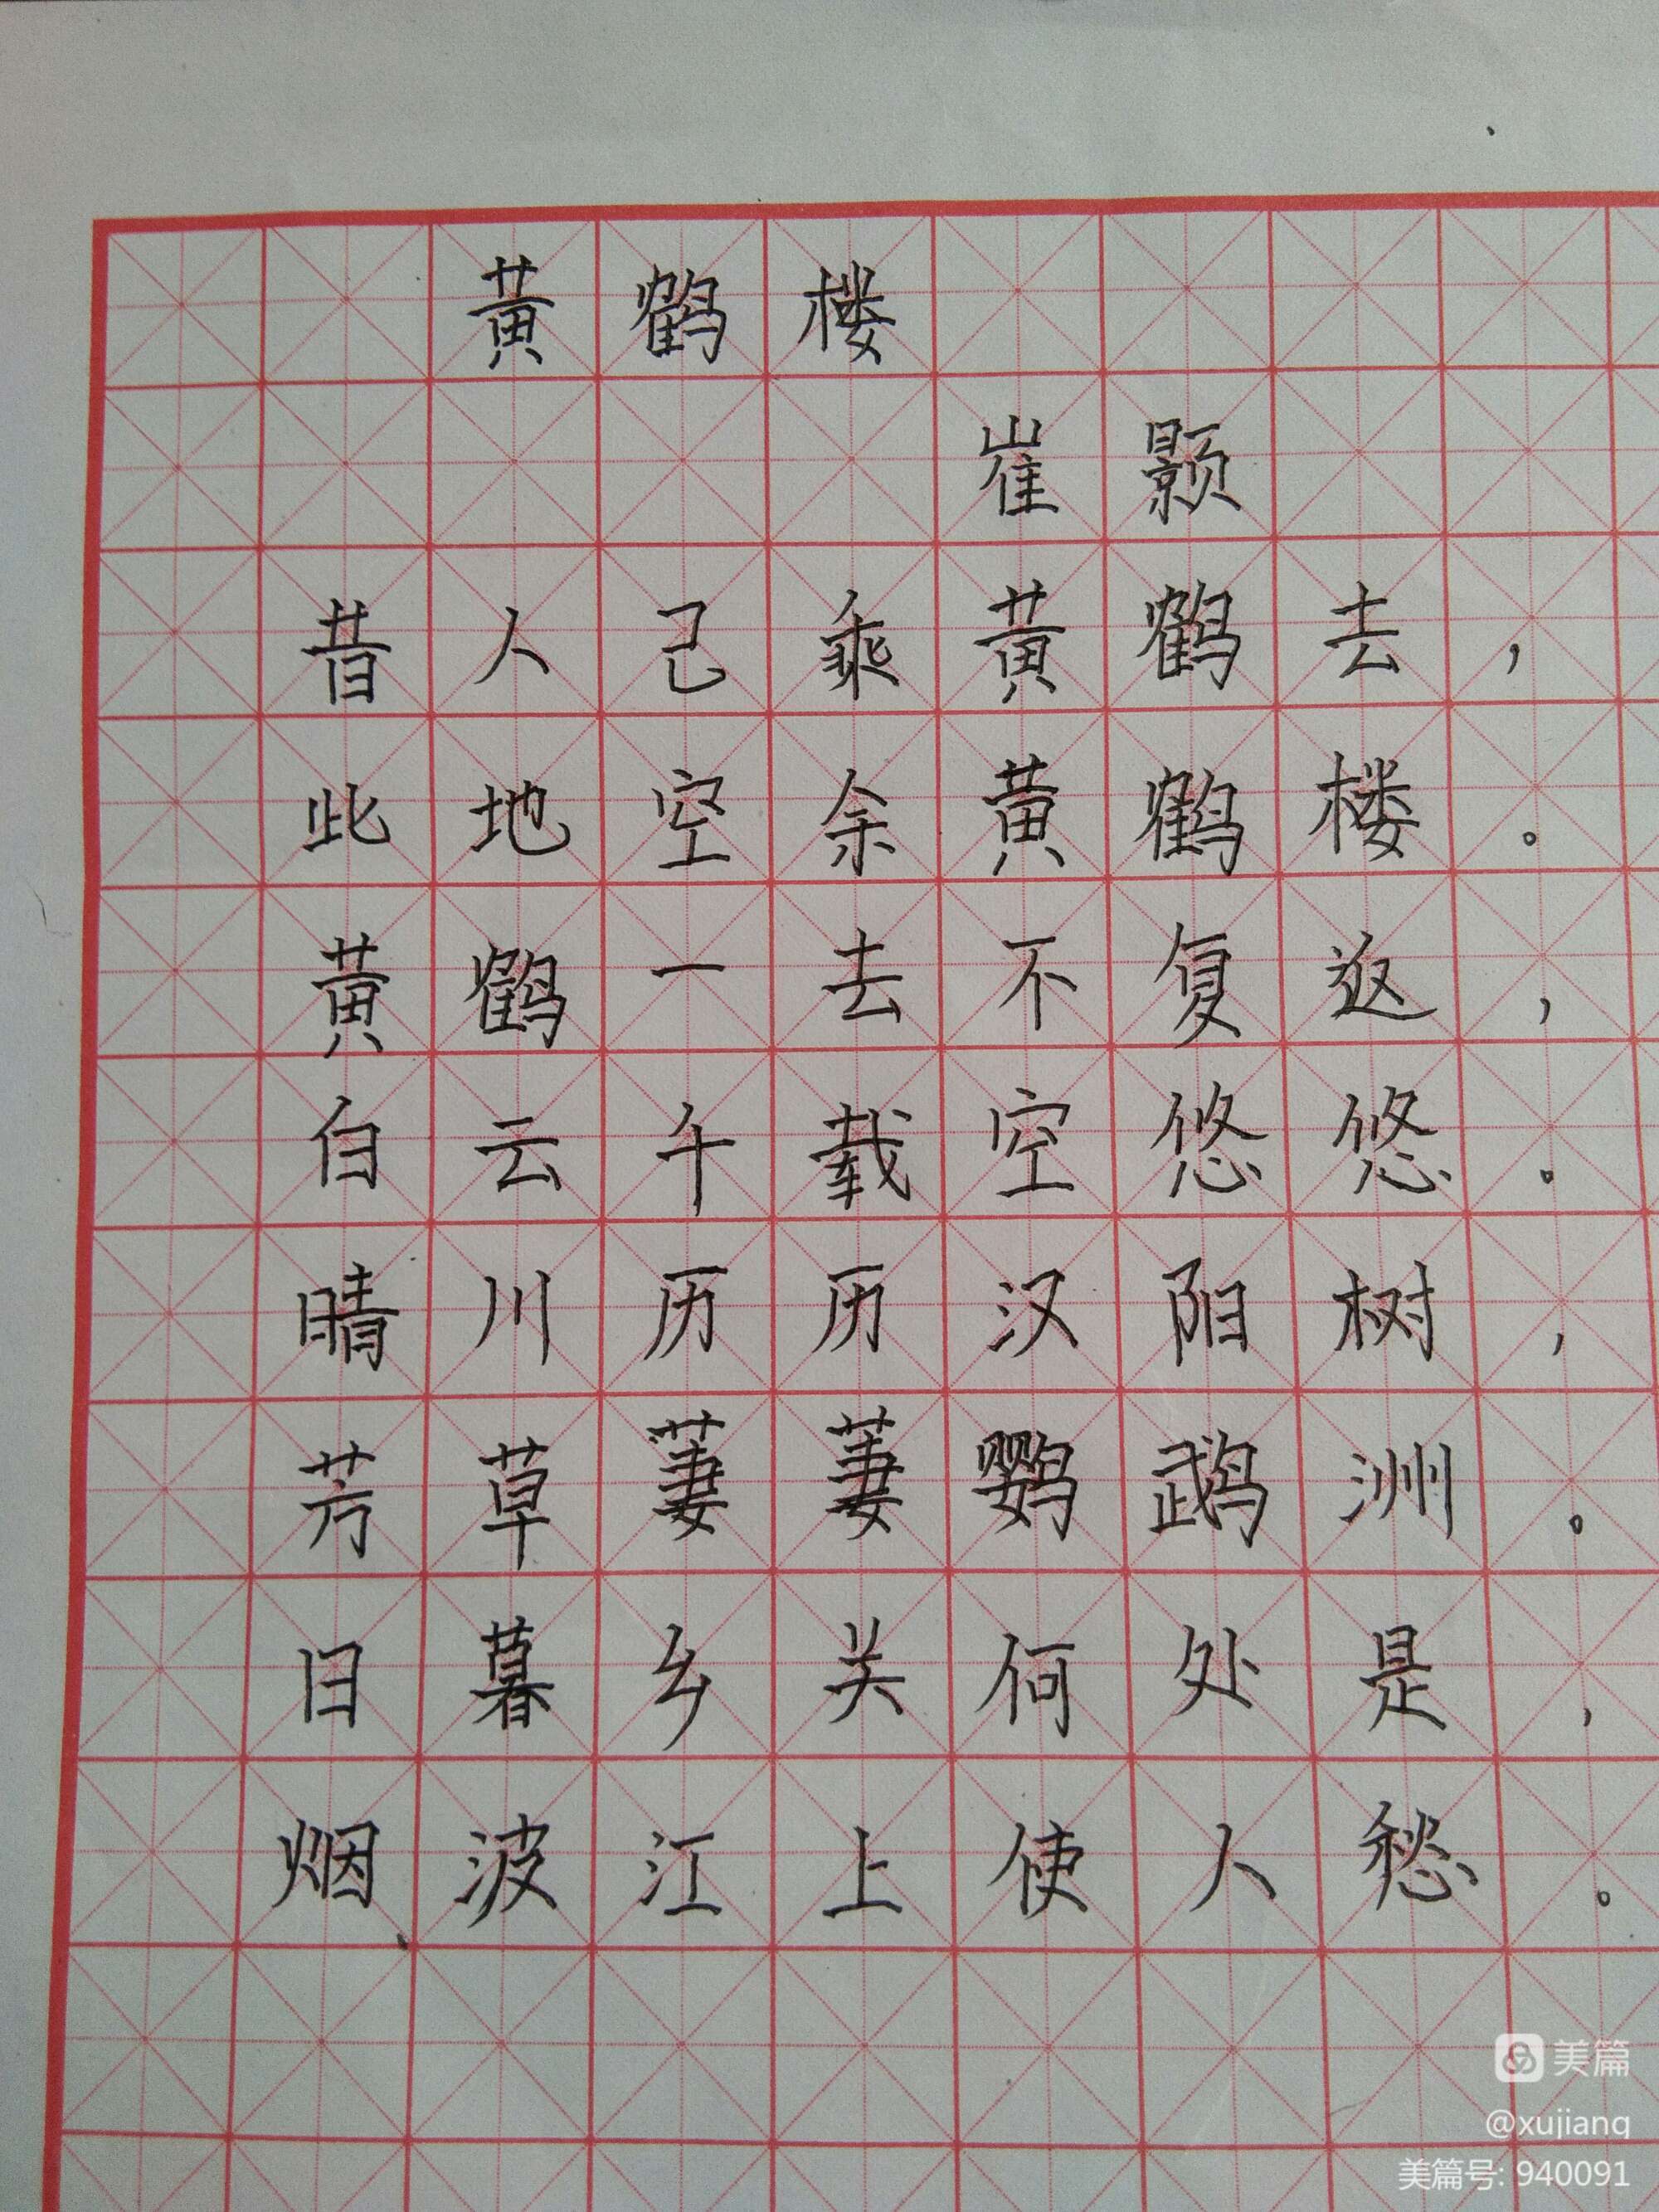 黄鹤楼
崔颢
昔人已乘黄鹤去，
此地空余黄鹤楼。
黄鹤一去不复返，
白云千载空悠悠。
晴川历历汉阳树，
芳草萋萋鹦鹉洲。
日暮乡关何处是，
烟波江上使人愁。
美篇
@xujianq
美篇号: 940091